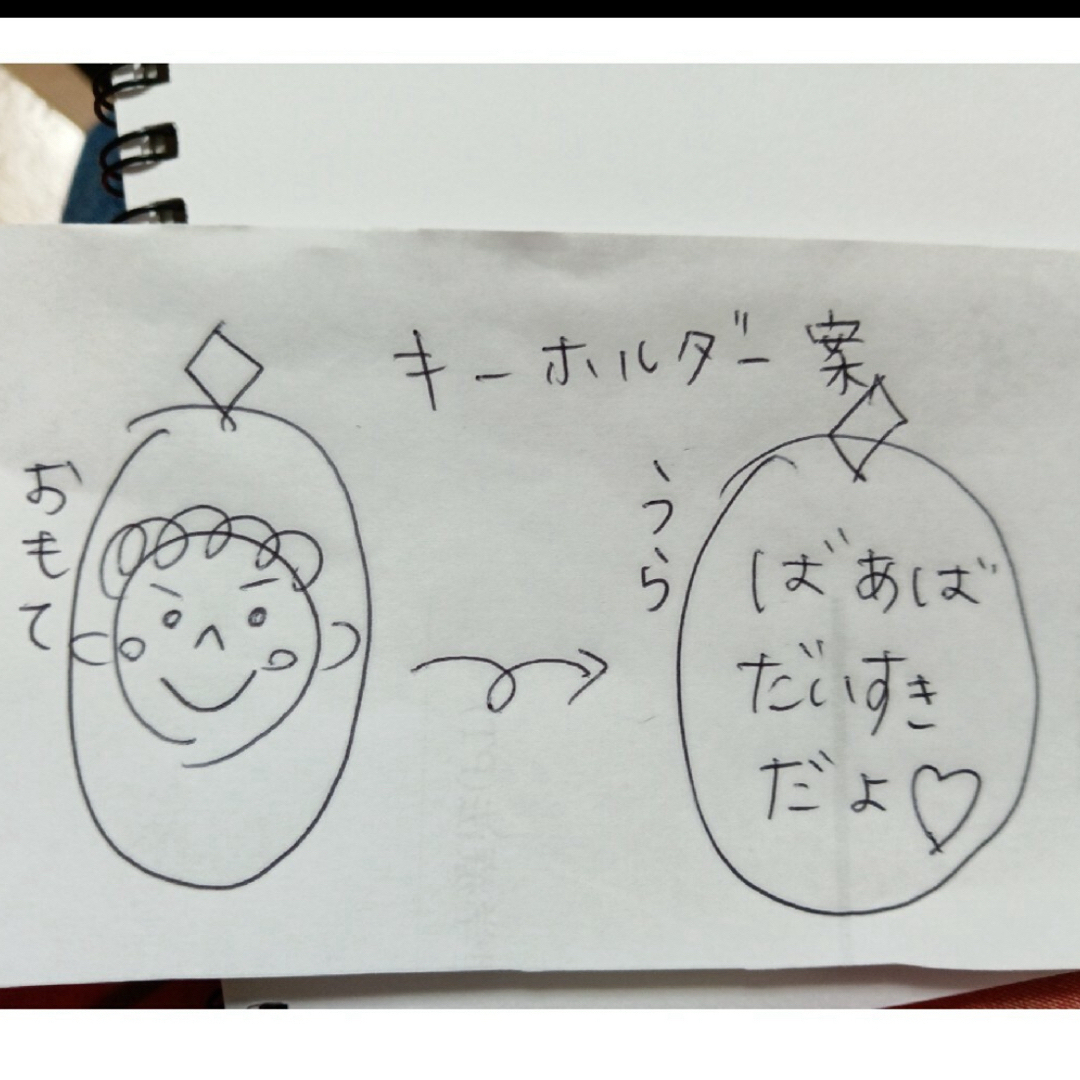 キーホルダー案
おもて
うら
ばあば
だいすき
だよ♡